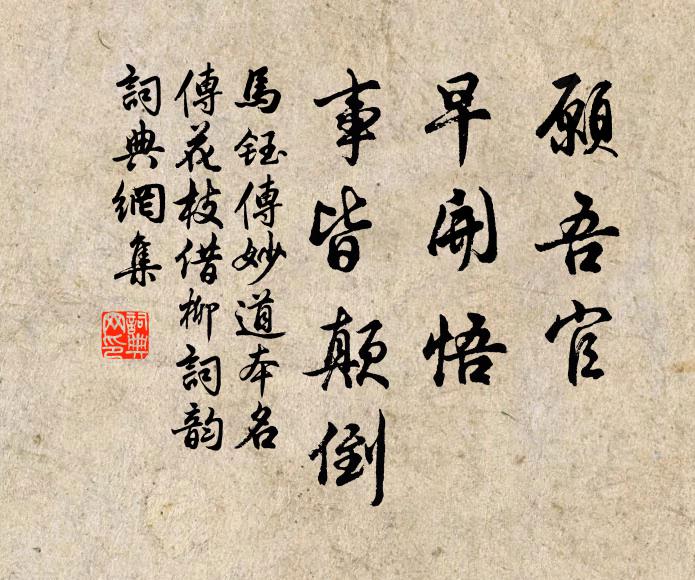 願吾官
早開悟
事皆顛倒
馬鈺傳妙道本名
傳花枝借柳詞韵
詞典網集
詞典
网印